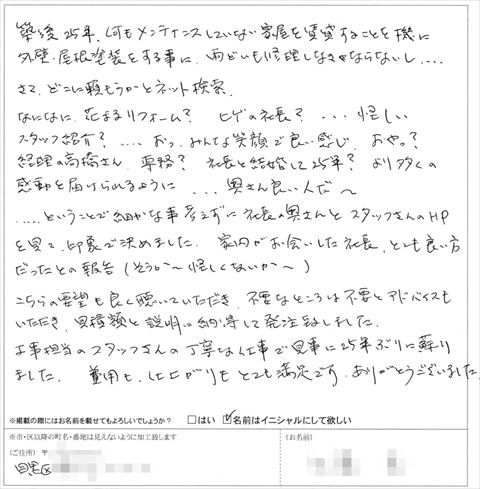 築後25年、何もメンテナンスしていない家屋を賃貸することを機に
外壁・屋根塗装をする事に、雨どいも修理しなきゃならないし....
さて、どこに頼もうかとネット検索。
なになに、花まるリフォーム? ヒゲの社長? ...怪しい
スタッフ紹介? .... おっ、みんな笑顔で良い感じ、おやっ?
経理の高橋さん、専務? 社長と結婚して25年? より多くの
感動を届けられるように ...奥さん良い人だ〜
.....ということで細かな事考えずに社長と奥さんとスタッフさんのHP
を見て、印象で決めました。 家内がお会いした社長、とても良い方
だったとの報告(そうか〜怪しくないか〜)
こちらの要望も良く聴いていただき、不要なところは不要とアドバイスも
いただき、見積額と説明に納得して発注致しました。
工事担当のスタッフさんの丁寧な仕事で見事に25年ぶりに蘇り
ました。 費用も、仕上がりもとても満足です。ありがとうございました。
※掲載の際にはお名前を載せてもよろしいでしょうか? □はい ☑名前はイニシャルにして欲しい
※市・区以降の町名・番地は見えないように加工致します
(ご住所) 〒 (お名前)
目黒区